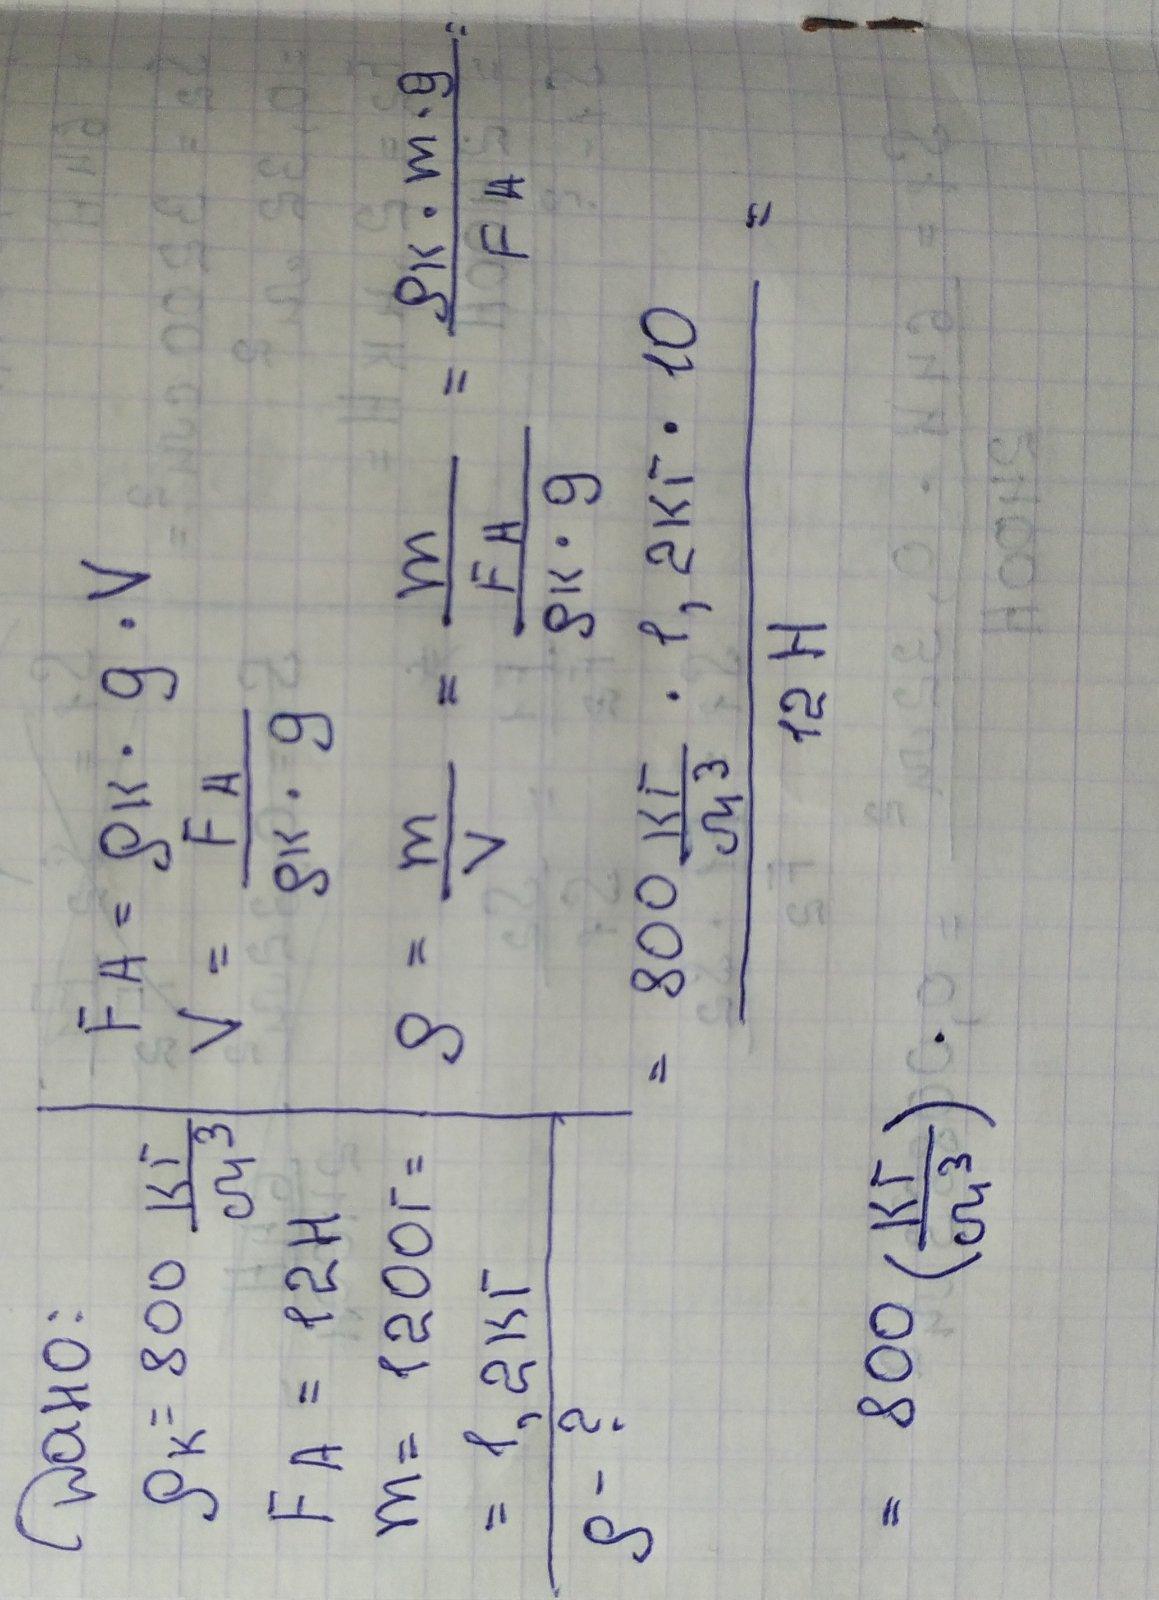 Дано:
ρк = 800 кг/м³
FA = 12Н
m = 1200г =
= 1,2кг
ρ - ?
FA = ρк · g · V
V = FA / (ρк · g)
ρ = m / V = m / (FA / (ρк · g)) = (ρк · m · g) / FA =
= (800 кг/м³ · 1,2кг · 10) / 12Н =
= 800 (кг/м³).